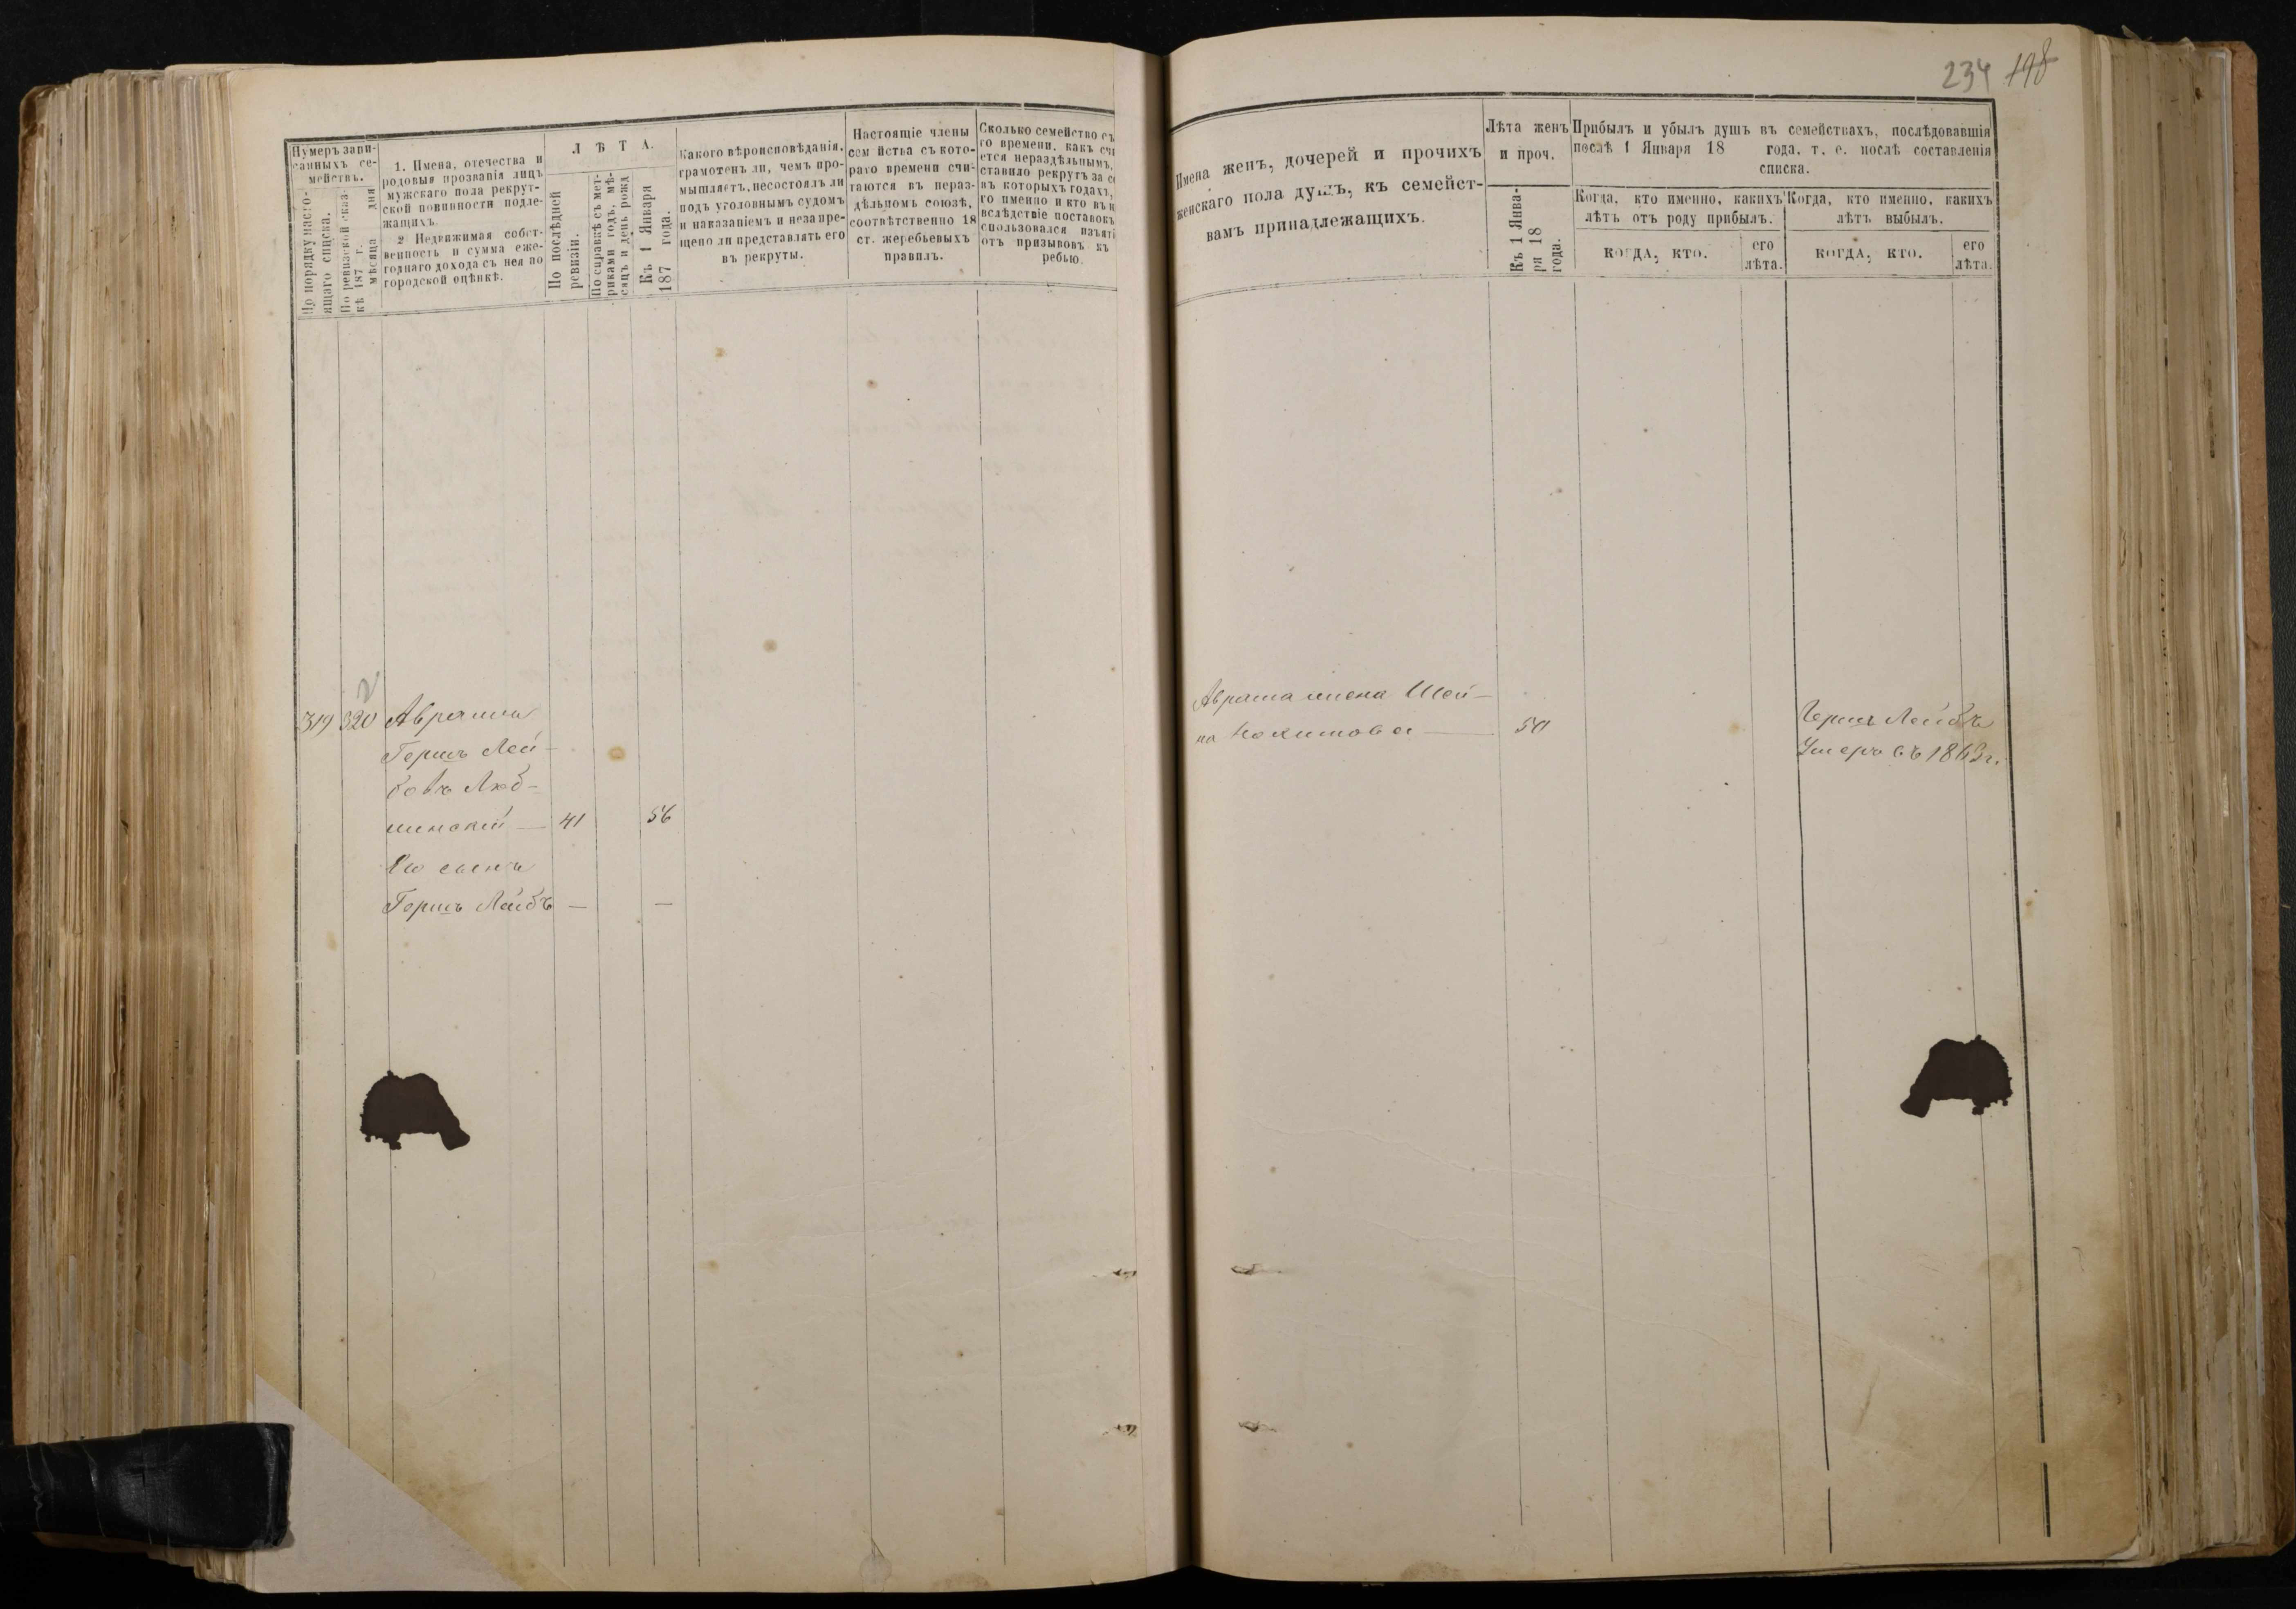 234 198
Нумеръ запи-
санныхъ се-
мействъ.
По порядку насто-
ящаго списка.
По ревизской сказ-
кѣ 187 г.
мѣсяца дня
1. Имена, отечества и
родовыя прозванія лицъ
мужскаго пола рекрут-
ской повинности подле-
жащихъ.
2 Недвижимая собст-
венность и сумма еже-
годнаго дохода съ нея по
городской оцѣнкѣ.
ЛѢТА.
По послѣдней
ревизіи.
По справкѣ съ мет-
риками годъ, мѣ-
сяцъ и день рожд
Къ 1 Января
187 года.
Какого вѣроисповѣданія,
грамотенъ ли, чѣмъ про-
мышляетъ, несостоялъ ли
подъ уголовнымъ судомъ
и наказаніемъ и незапре-
щено ли представлять его
въ рекруты.
Настоящіе члены
сем йства съ кото-
раго времени счи-
таются въ нераз-
дѣльномъ союзѣ,
соотвѣтственно 18
ст. жеребьевыхъ
правилъ.
Сколько семейство съ
го времени, какъ счи
ется нераздѣльнымъ,
ставило рекрутъ за се
въ которыхъ годахъ,
го именно и кто въ н
вслѣдствіе поставокъ
спользовался изъяті
отъ призывовъ къ
ребью.
Имена женъ, дочерей и прочихъ
женскаго пола душъ, къ семейст-
вамъ принадлежащихъ.
Лѣта женъ
и проч.
Къ 1 Янва-
ря 18
года.
Прибылъ и убылъ душъ въ семействахъ, послѣдовавшія
послѣ 1 Января 18 года, т. е. послѣ составленія
списка.
Когда, кто именно, какихъ
лѣтъ отъ роду прибылъ.
КОГДА, КТО.
его
лѣта.
Когда, кто именно, какихъ
лѣтъ выбылъ.
КОГДА, КТО.
его
лѣта.
319 320 Аврамъ
Гершъ Лей-
бовъ Люб-
минскій — 41 56
Его сынъ
Гершъ Лейбъ — —
Аврама жена Шей-
на Нохимова — 50
Гершъ Лейбъ
Умеръ въ 1863 г.